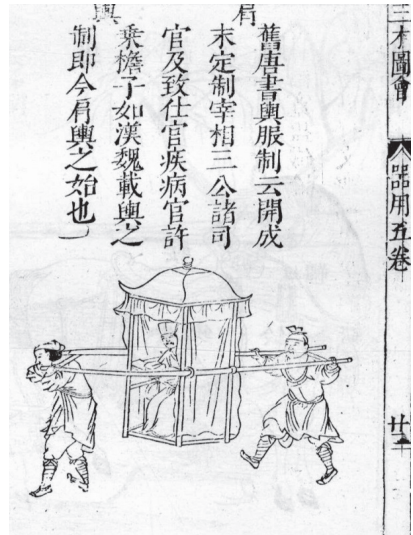 三才圖會
器用五卷
廿
肩輿
舊唐書輿服制云開成
末定制宰相三公諸司
官及致仕官疾病官許
乘檐子如漢魏載輿之
制即今肩輿之始也